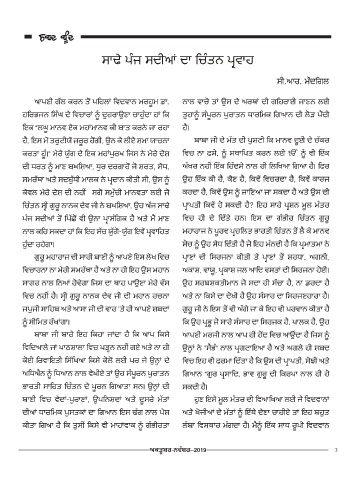 ਸ਼ਬਦ ਬੂੰਦ
ਸਾਢੇ ਪੰਜ ਸਦੀਆਂ ਦਾ ਚਿੰਤਨ ਪ੍ਰਵਾਹ
ਸੀ.ਆਰ. ਮੌਦਗਿਲ
ਆਪਣੀ ਗੱਲ ਕਰਨ ਤੋਂ ਪਹਿਲਾਂ ਵਿਦਵਾਨ ਮਰਹੂਮ ਡਾ.
ਹਰਿਭਜਨ ਸਿੰਘ ਦੇ ਵਿਚਾਰਾਂ ਨੂੰ ਦੁਹਰਾਉਣਾ ਚਾਹੁੰਦਾ ਹਾਂ ਕਿ
ਇਕ "ਲਘੂ ਮਾਨਵ ਏਕ ਮਹਾਂਮਾਨਵ ਕੀ ਬਾਤ ਕਰਨੇ ਜਾ ਰਹਾ
ਹੈ, ਇਸ ਮੇਂ ਤਰੁਟੀਓਂ ਜ਼ਰੂਰ ਹੋਂਗੀ, ਉਨ ਕੇ ਲੀਏ ਸ਼ਮਾ ਯਾਚਨਾ
ਕਰਤਾ ਹੂੰ।" ਮੇਰੇ ਯੁੱਗ ਦੇ ਇਕ ਮਹਾਂਪੁਰਖ ਜਿਸ ਨੇ ਮੇਰੇ ਦੇਸ਼
ਦੀ ਧਰਤ ਨੂੰ ਮਾਣ ਬਖਸ਼ਿਆ, ਧੁਰ ਦਰਗਾਹੋਂ ਜੋ ਸ਼ਰਤ, ਸੋਧ,
ਸਮਰੱਥਾ ਅਤੇ ਸਦਬੁੱਧੀ ਮਾਲਕ ਨੇ ਪ੍ਰਦਾਨ ਕੀਤੀ ਸੀ, ਉਸ ਨੂੰ
ਕੇਵਲ ਮੇਰੇ ਦੇਸ਼ ਦੀ ਨਹੀਂ ਸਗੋਂ ਸਮੁੱਚੀ ਮਾਨਵਤਾ ਲਈ ਜੋ
ਚਿੰਤਨ ਸ੍ਰੀ ਗੁਰੂ ਨਾਨਕ ਦੇਵ ਜੀ ਨੇ ਬਖਸ਼ਿਆ, ਉਹ ਅੱਜ ਸਾਢੇ
ਪੰਜ ਸਦੀਆਂ ਤੋਂ ਪਿੱਛੋਂ ਵੀ ਉਨਾ ਪ੍ਰਾਸੰਗਿਕ ਹੈ ਅਤੇ ਮੈਂ ਮਾਣ
ਨਾਲ ਕਹਿ ਸਕਦਾ ਹਾਂ ਕਿ ਇਹ ਸੋਚ ਯੁੱਗੋ-ਯੁੱਗ ਇਵੇਂ ਪ੍ਰਵਾਹਿਤ
ਹੁੰਦਾ ਰਹੇਗਾ।
ਗੁਰੂ ਮਹਾਰਾਜ ਦੀ ਸਾਰੀ ਬਾਣੀ ਨੂੰ ਆਪਣੇ ਇਸ ਲੇਖ ਵਿਚ
ਵਿਚਾਰਨਾ ਨਾ ਮੇਰੀ ਸਮਰੱਥਾ ਹੈ ਅਤੇ ਨਾ ਹੀ ਇਉਂ ਇਸ ਮਹਾਨ
ਸਾਗਰ ਨਾਲ ਨਿਆਂ ਹੋਵੇਗਾ ਜਿਸ ਦਾ ਥਾਹ ਪਾਉਣਾ ਮੇਰੇ ਵੱਸ
ਵਿਚ ਨਹੀਂ ਹੈ। ਸ੍ਰੀ ਗੁਰੂ ਨਾਨਕ ਦੇਵ ਜੀ ਦੀ ਮਹਾਨ ਰਚਨਾ
ਜਪੁਜੀ ਸਾਹਿਬ ਅਤੇ ਆਸਾ ਜੀ ਦੀ ਵਾਰ 'ਤੇ ਹੀ ਆਪਣੇ ਸ਼ਬਦਾਂ
ਨੂੰ ਸੀਮਿਤ ਰੱਖਾਂਗਾ।
ਬਾਬਾ ਜੀ ਬਾਰੇ ਇਹ ਕਿਹਾ ਜਾਂਦਾ ਹੈ ਕਿ ਆਪ ਕਿਸੇ
ਵਿਦਿਆਲੇ ਜਾਂ ਪਾਠਸ਼ਾਲਾ ਵਿਚ ਪੜ੍ਹਨ ਨਹੀਂ ਗਏ ਅਤੇ ਨਾ ਹੀ
ਕੋਈ ਰਿਵਾਇਤੀ ਸਿੱਖਿਆ ਕਿਸੇ ਕੋਲੋਂ ਲਈ ਪਰ ਜੇ ਉਨ੍ਹਾਂ ਦੇ
ਅਧਿਐਨ ਨੂੰ ਧਿਆਨ ਨਾਲ ਵੇਖੀਏ ਤਾਂ ਉਹ ਸੰਪੂਰਨ ਪੁਰਾਤਨ
ਭਾਰਤੀ ਸਾਹਿਤ ਚਿੰਤਨ ਦੇ ਪੂਰਨ ਗਿਆਤਾ ਸਨ। ਉਨ੍ਹਾਂ ਦੀ
ਬਾਣੀ ਵਿਚ ਵੇਦਾਂ-ਪੁਰਾਣਾਂ, ਉਪਨਿਸ਼ਦਾਂ ਅਤੇ ਦੂਸਰੇ ਮੱਤਾਂ
ਦੀਆਂ ਧਾਰਮਿਕ ਪੁਸਤਕਾਂ ਦਾ ਗਿਆਨ ਇਸ ਢੰਗ ਨਾਲ ਪੇਸ਼
ਕੀਤਾ ਗਿਆ ਹੈ ਕਿ ਤੁਸੀਂ ਕਿਸੇ ਵੀ ਮਾਹਾਂਵਾਕ ਨੂੰ ਗੰਭੀਰਤਾ
ਨਾਲ ਵਾਚੋ ਤਾਂ ਉਸ ਦੇ ਅਰਥਾਂ ਦੀ ਗਹਿਰਾਈ ਜਾਣਨ ਲਈ
ਤੁਹਾਨੂੰ ਸੰਪੂਰਨ ਪੁਰਾਤਨ ਧਾਰਮਿਕ ਗਿਆਨ ਦੀ ਲੋੜ ਪੈਂਦੀ
ਹੈ।
ਬਾਬਾ ਜੀ ਦੇ ਮੱਤ ਦੀ ਪੁਸ਼ਟੀ ਕਿ ਮਾਨਵ ਦੂਈ ਦੇ ਚੱਕਰ
ਵਿਚ ਨਾ ਫਸੇ, ਨੂੰ ਸਥਾਪਿਤ ਕਰਨ ਲਈ ੴ ਨੂੰ ਵੀ ਇੱਕ
ਅੱਖਰ ਨਹੀਂ ਇੱਕ ਹਿੰਦਸੇ ਨਾਲ ਹੀ ਲਿਖਿਆ ਗਿਆ ਹੈ। ਫਿਰ
ਉਹ ਇੱਕ ਕੀ ਹੈ, ਕੌਣ ਹੈ, ਕਿਵੇਂ ਵਿਚਰਦਾ ਹੈ, ਕਿਵੇਂ ਕਾਰਜ
ਕਰਦਾ ਹੈ, ਕਿਵੇਂ ਉਸ ਨੂੰ ਜਾਣਿਆ ਜਾ ਸਕਦਾ ਹੈ ਅਤੇ ਉਸ ਦੀ
ਪ੍ਰਾਪਤੀ ਕਿਵੇਂ ਹੋ ਸਕਦੀ ਹੈ? ਇਹ ਸਾਰੇ ਪ੍ਰਸ਼ਨ ਮੂਲ ਮੰਤਰ
ਵਿਚ ਹੀ ਦੇ ਦਿੱਤੇ ਹਨ। ਇਸ ਦਾ ਗੰਭੀਰ ਚਿੰਤਨ ਗੁਰੂ
ਮਹਾਰਾਜ ਨੇ ਪੂਰਵ ਪ੍ਰਚਲਿਤ ਭਾਰਤੀ ਚਿੰਤਨ ਤੋਂ ਲੈ ਕੇ ਮਾਨਵ
ਸੋਚ ਨੂੰ ਉਹ ਸੇਧ ਦਿੱਤੀ ਹੈ ਜੋ ਇਹ ਮੰਨਦੀ ਹੈ ਕਿ ਪ੍ਰਮਾਤਮਾ ਨੇ
ਪ੍ਰਾਣਾਂ ਦੀ ਸਿਰਜਨਾ ਕੀਤੀ ਤੇ ਪ੍ਰਾਣਾਂ ਤੋਂ ਸ਼ਰਧਾ, ਅਗਨੀ,
ਅਕਾਸ਼, ਵਾਯੂ, ਪ੍ਰਕਾਸ਼ ਜਲ ਆਦਿ ਵਸਤਾਂ ਦੀ ਸਿਰਜਨਾ ਹੋਈ।
ਉਹ ਸਰਬਸ਼ਕਤੀਮਾਨ ਜੋ ਸਦਾ ਹੀ ਸੱਚਾ ਹੈ, ਨਾ ਡਰਦਾ ਹੈ
ਅਤੇ ਨਾ ਕਿਸੇ ਦਾ ਦੋਖੀ ਹੈ ਉਹ ਸੰਸਾਰ ਦਾ ਸਿਰਜਣਹਾਰਾ ਹੈ।
ਗੁਰੂ ਜੀ ਨੇ ਇਸ ਤੋਂ ਵੀ ਅੱਗੇ ਜਾ ਕੇ ਇਹ ਵੀ ਪਰਵਾਨ ਕੀਤਾ ਹੈ
ਕਿ ਉਹ ਪ੍ਰਭੂ ਜੋ ਸਾਰੇ ਸੰਸਾਰ ਦਾ ਸਿਰਜਕ ਹੈ, ਪਾਲਕ ਹੈ, ਉਹ
ਆਪਣੀ ਮਰਜੀ ਨਾਲ ਆਪ ਹੀ ਹੋਂਦ ਵਿਚ ਆਉਂਦਾ ਹੈ ਜਿਸ ਨੂੰ
ਉਨ੍ਹਾਂ ਨੇ 'ਸੈਭੰ' ਨਾਲ ਪ੍ਰਗਟਾਇਆ ਹੈ ਅਤੇ ਅਗਲੇ ਹੀ ਸ਼ਬਦ
ਵਿਚ ਇਹ ਵੀ ਫਰਮਾ ਦਿੱਤਾ ਹੈ ਕਿ ਉਸ ਦੀ ਪ੍ਰਾਪਤੀ, ਸੋਝੀ ਅਤੇ
ਗਿਆਨ 'ਗੁਰ ਪ੍ਰਸਾਦਿ, ਭਾਵ ਗੁਰੂ ਦੀ ਕਿਰਪਾ ਨਾਲ ਹੀ ਹੋ
ਸਕਦੀ ਹੈ।
ਹੁਣ ਇਸੇ ਮੂਲ ਮੰਤਰ ਦੀ ਵਿਆਖਿਆ ਲਈ ਜੇ ਵਿਦਵਾਨਾਂ
ਅਤੇ ਖੋਜੀਆਂ ਦੇ ਮੱਤਾਂ ਨੂੰ ਇੱਥੇ ਦੇਣਾ ਚਾਹੀਏ ਤਾਂ ਇਹ ਬਹੁਤ
ਲੰਬਾ ਵਿਸਥਾਰ ਮੰਗਦਾ ਹੈ। ਮੈਨੂੰ ਇੱਕ ਸਾਧ ਰੂਪੀ ਵਿਦਵਾਨ
ਅਕਤੂਬਰ-ਨਵੰਬਰ-2019
3